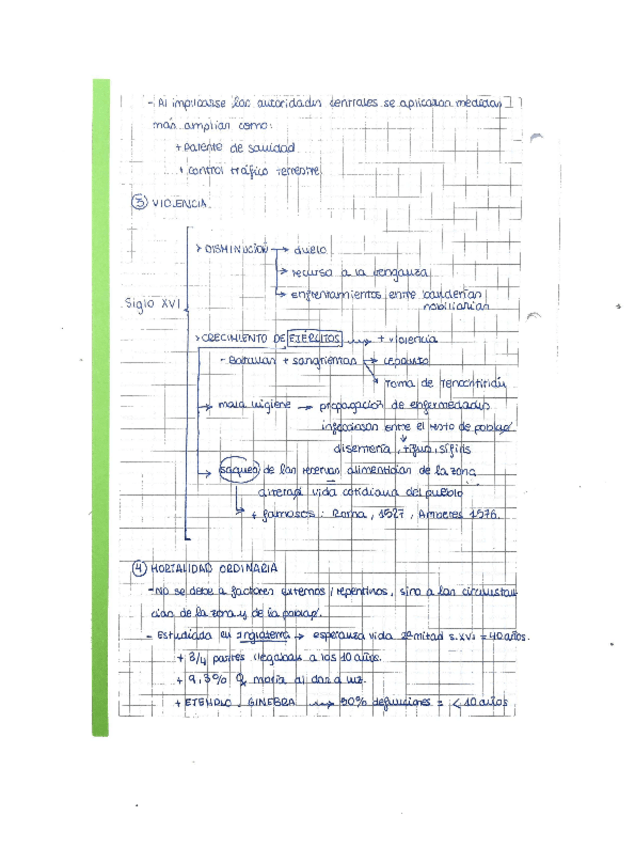 - Al implicarse las autoridades centrales se aplicaron medidas
más amplias como:
+ patente de sanidad
+ control tráfico terrestre
③ VIOLENCIA.
Siglo XVI
> DISMINUCIÓN → duelo
→ recurso a la venganza
→ enfrentamientos entre banderías
nobiliarias
> CRECIMIENTO DE EJÉRCITOS → + violencia
- Batallas + sangrientas → Lepanto
→ Toma de Tenochtitlán
→ mala higiene → propagación de enfermedades
infecciosas entre el resto de poblaº
disentería, tifus, sífilis
→ saqueo de las reservas alimenticias de la zona
vida cotidiana del pueblo
→ + famosos: Roma, 1527, Amberes 1576.
④ MORTALIDAD ORDINARIA
- No se debe a factores externos / repentinos, sino a las circunstan
cias de la zona y de la poblaº.
- Estudiada en Inglaterra → esperanza vida 2ª mitad s.XVI = 40 años.
+ 3/4 partes llegaban a los 10 años.
+ 9,3% ♀ moría al dar a luz.
+ EJEMPLO: GINEBRA → 50% defunciones = < 10 años